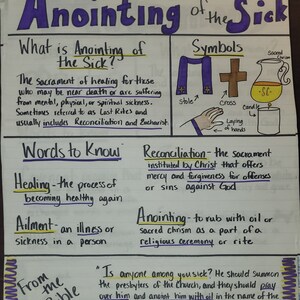 Anointing of the Sick
What is Anointing of
the Sick?
The sacrament of healing for those
who may be near death or are suffering
from mental, physical, or spiritual sickness.
Sometimes referred to as Last Rites and
usually includes Reconciliation and Eucharist
Symbols
Sacred
Chrism
Stole
Cross
Candle
Laying
of
hands
Words to Know
Healing - the process of
becoming healthy again
Ailment - an illness or
sickness in a person
Reconciliation - the sacrament
instituted by Christ that offers
mercy and forgiveness for offenses
or sins against God
Anointing - to rub with oil or
sacred chrism as a part of a
religious ceremony or rite
From the
Bible
"Is anyone among you sick? He should summon
the presbyters of the Church, and they should pray
over him and anoint him with oil in the name of the